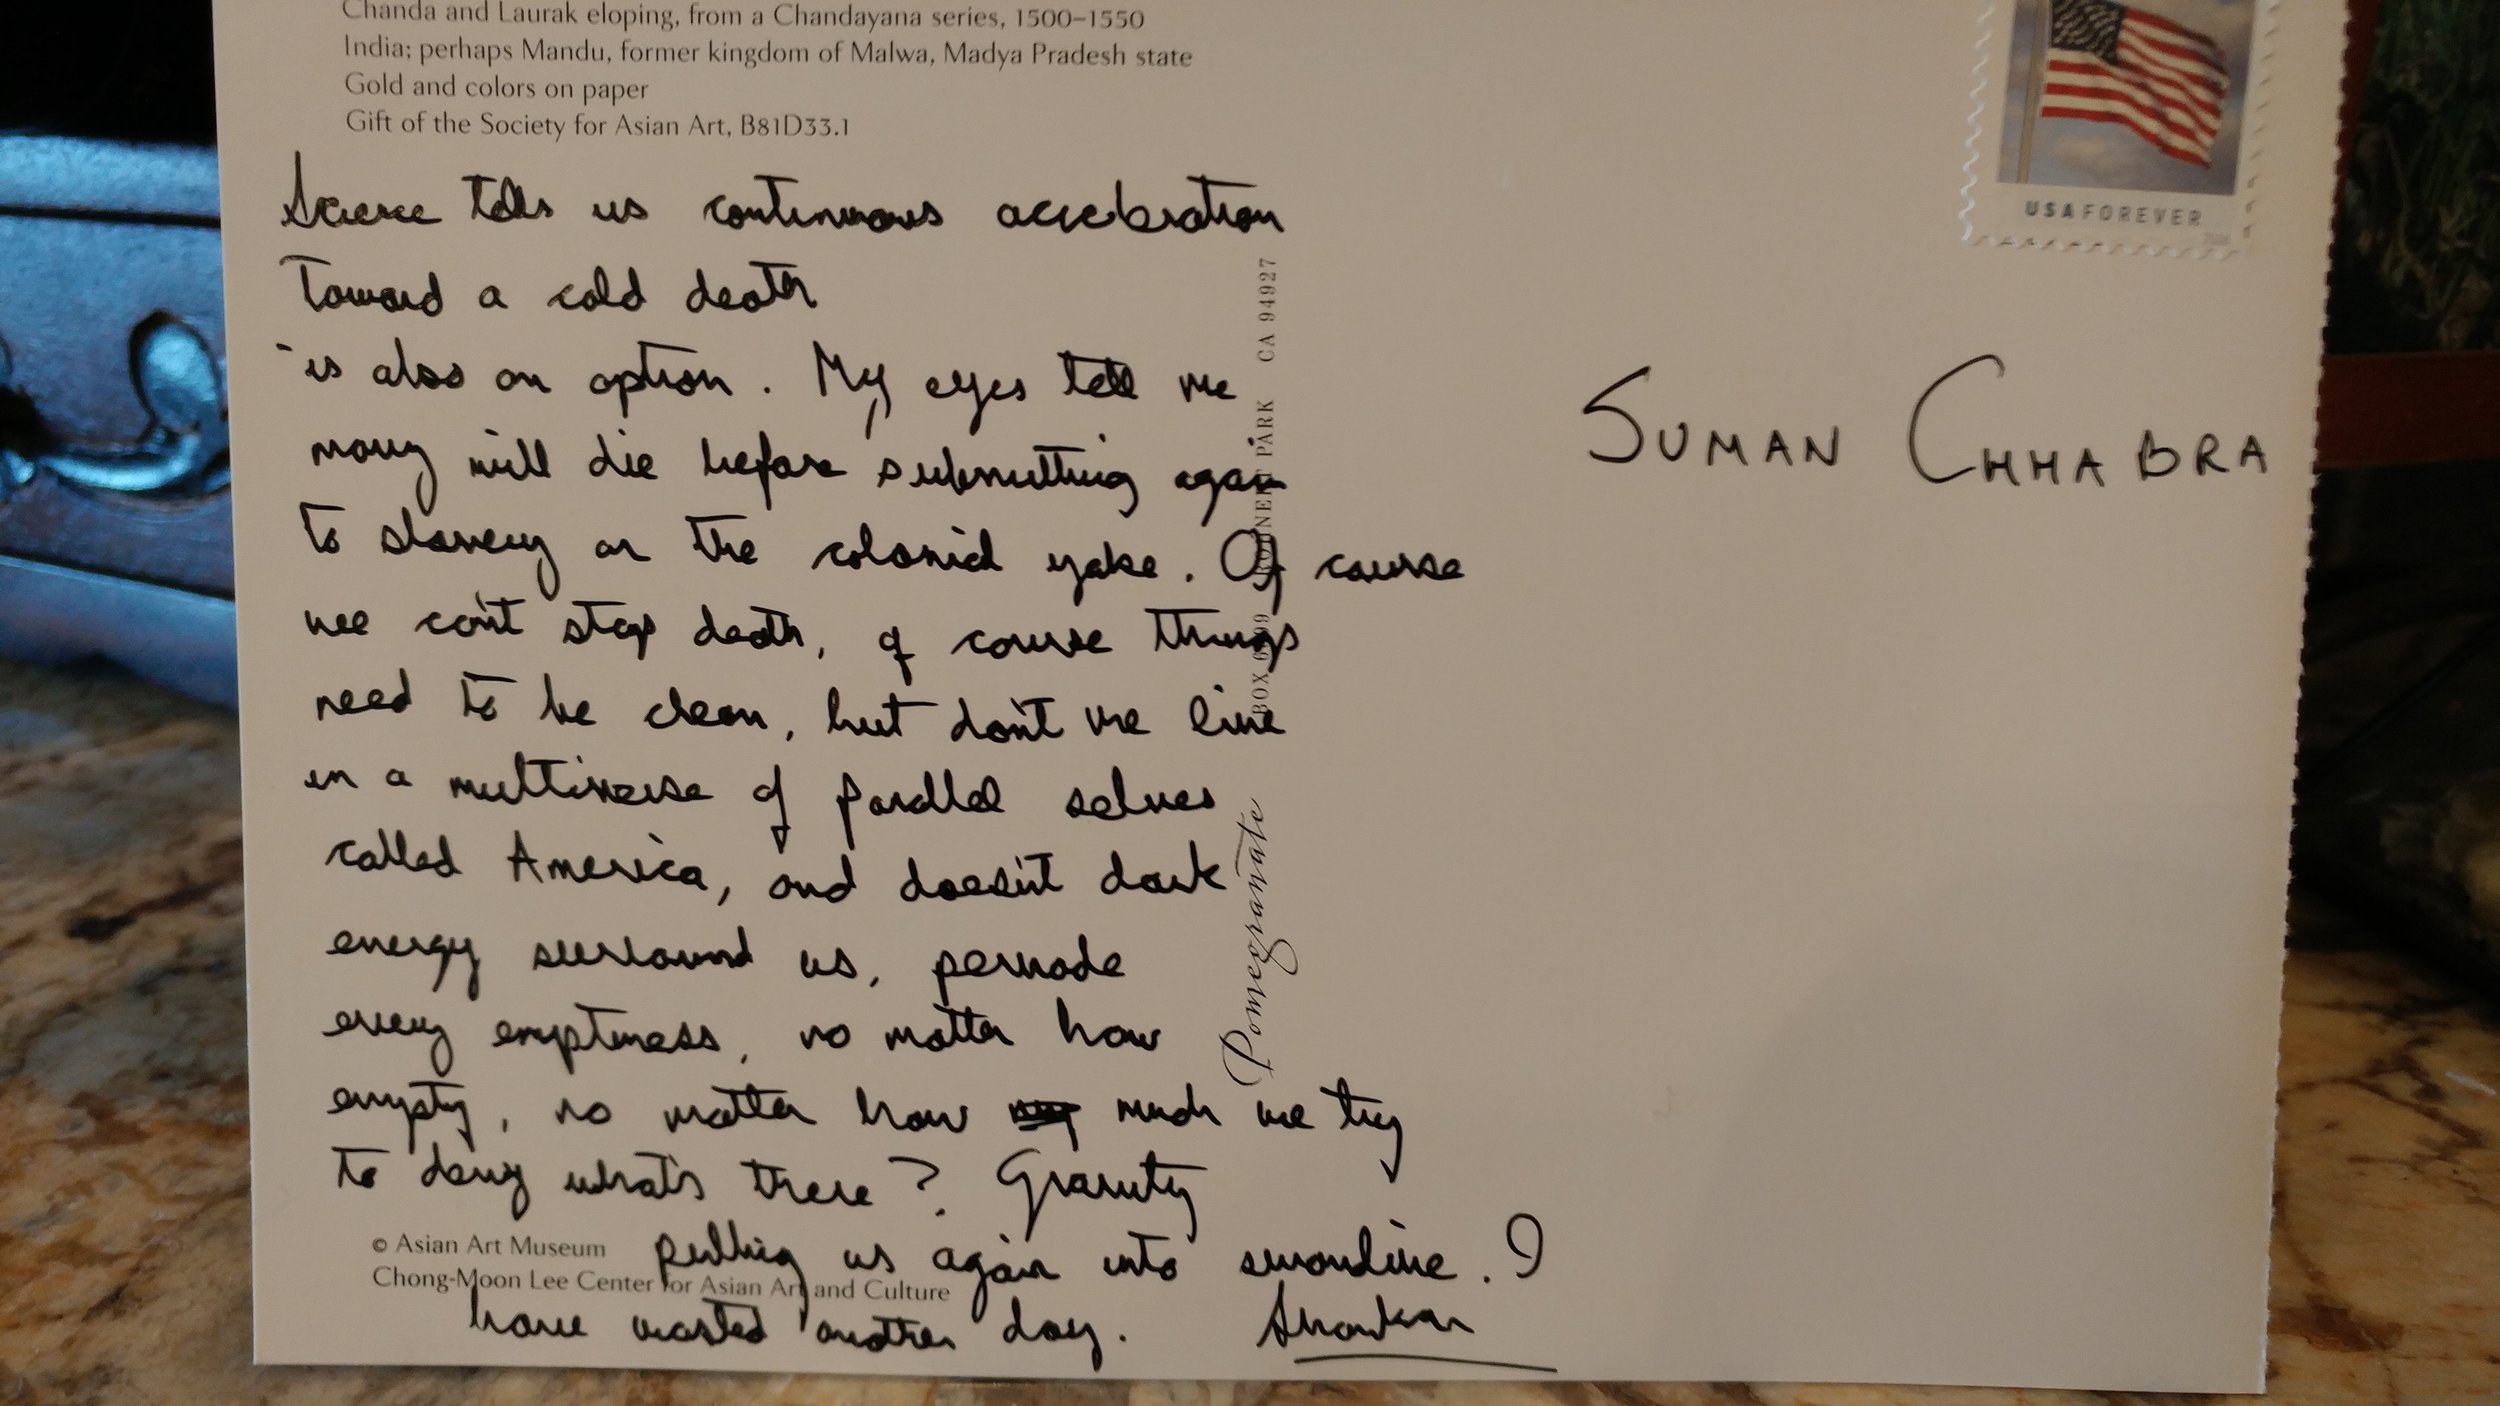 Chanda and Laurak eloping, from a Chandayana series, 1500–1550
India; perhaps Mandu, former kingdom of Malwa, Madya Pradesh state
Gold and colors on paper
Gift of the Society for Asian Art, B81D33.1
USA FOREVER
Science tells us continuous acceleration
toward a cold death
is also an option. My eyes tell me
many will die before submitting again
to slavery or the colonial yoke. Of course
we can't stop death, of course things
need to be clean, but don't we live
in a multiverse of parallel selves
called America, and doesn't dark
energy surround us, pervade
every emptiness, no matter how
empty, no matter how much we try
to deny what's there? Gravity
pulling us again into swandive. I
have wasted another day.
Shankar
SUMAN CHHABRA
BOX CA 94927
Pomegranate
© Asian Art Museum
Chong-Moon Lee Center for Asian Art and Culture